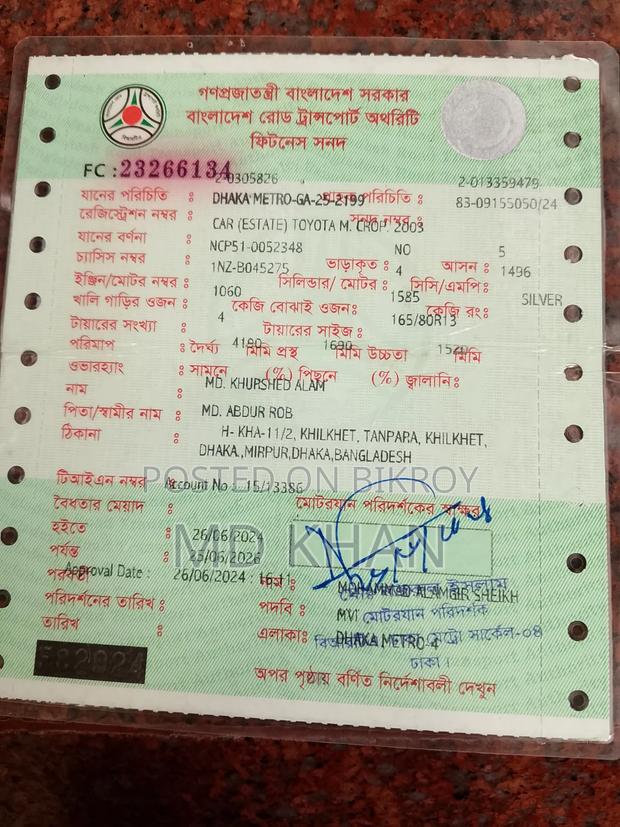 গণপ্রজাতন্ত্রী বাংলাদেশ সরকার
বাংলাদেশ রোড ট্রান্সপোর্ট অথরিটি
ফিটনেস সনদ
FC : 23266134
2-0305826 2-013359479
যানের পরিচিতি : পরিচিতি :
DHAKA METRO-GA-25-2199 83-09155050/24
রেজিস্ট্রেশন নম্বর : সনদ নম্বর :
CAR (ESTATE) TOYOTA M. CROP, 2003
যানের বর্ণনা :
NCP51-0052348 NO 5
চ্যাসিস নম্বর : ভাড়াকৃত : আসন :
1NZ-B045275 4 1496
ইঞ্জিন/মোটর নম্বর : সিলিন্ডার/ মোটর : সিসি/এমপি:
1060 1585 SILVER
খালি গাড়ির ওজন : কেজি বোঝাই ওজন: কেজি রং:
4 165/80R13
টায়ারের সংখ্যা : টায়ারের সাইজ :
পরিমাপ : দৈর্ঘ্য 4190 মিমি প্রস্থ 1690 মিমি উচ্চতা মিমি
ওভারহ্যাং : সামনে (%) পিছনে (%) জ্বালানি:
নাম : MD. KHURSHED ALAM
পিতা/স্বামীর নাম : MD. ABDUR ROB
ঠিকানা : H- KHA-11/2, KHILKHET, TANPARA, KHILKHET,
DHAKA.,MIRPUR,DHAKA,BANGLADESH
POSTED ON BIKROY
টিআইএন নম্বর : Account No : 15/13386
বৈধতার মেয়াদ : মোটরযান পরিদর্শকের স্বাক্ষর
হইতে : 26/06/2024
MD KHAN
পর্যন্ত : 25/06/2026
পরবর্তী
Approval Date : 26/06/2024 নাম : MOHAMMAD ALAMGIR SHEIKH
ইসলাম
পরিদর্শনের তারিখ : পদবি : MVI
মোটরযান পরিদর্শক
তারিখ : এলাকা: DHAKA METRO-4
মেট্রো সার্কেল-০৪
ঢাকা।
F:2024
অপর পৃষ্ঠায় বর্ণিত নির্দেশাবলী দেখুন